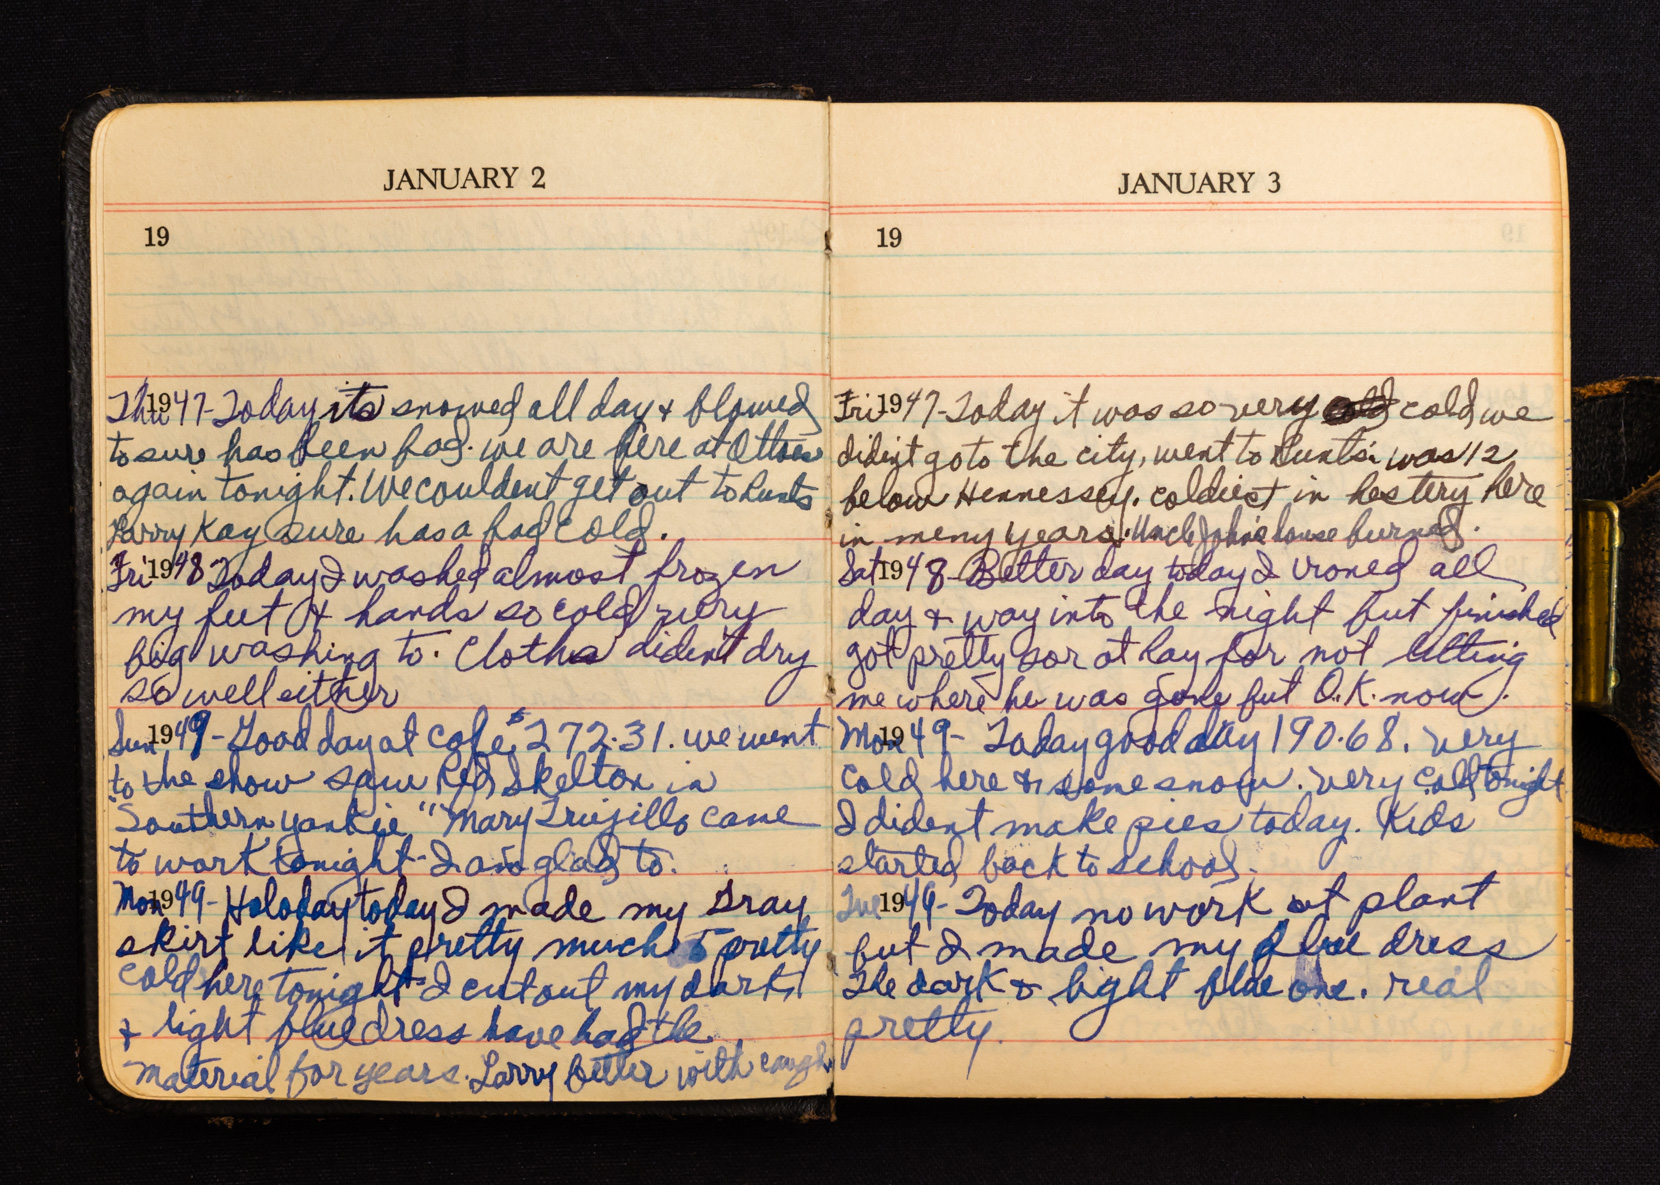 JANUARY 2
19
Thu 1947-Today its snowed all day & blowed
to sure has been bad. we are here at Ottoes
again tonight. We couldent get out to Runts
Larry Kay sure has a bad cold.
Fri 1948 Today I washed almost frozen
my feet & hands so cold very
big washing to. Cloths dident dry
so well either
Sun 1949-Good day at cafe $272.31. we went
to the show saw Red Skelton in
"Southern yankie" Mary Trujillo came
to work tonight-I am glad to.
Mon 1949-Holoday today I made my Gray
skirt like it pretty much pretty
cold here tonight-I cut out my dark
& light blue dress have had the
material for years. Larry better with cough
JANUARY 3
19
Fri 1947-Today it was so very cold cold we
dident go to the city, went to Runts. was 12
below Hennessey. coldiest in hestery here
in meny years. Uncle John's house burned.
Sat 1948-Better day today I ironed all
day & way into the night but finished
got pretty sor at Ray for not letting
me where he was gone but O.K. now.
Mon 1949- Today good day 190.68. very
cold here & some snow. very cold tonight
I dident make pies today. Kids
started back to school.
Tue 1946-Today no work at plant
but I made my blue dress
The dark & light blue one. real
pretty.